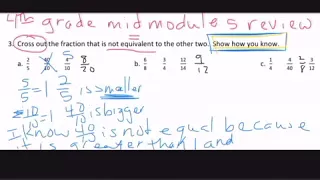 4th grade mid module 5 review
3. Cross out the fraction that is not equivalent to the other two. Show how you know.
a. 2/5 40/10 4/10 8/20 b. 6/8 3/4 9/12 c. 1/4 2/8 3/12
5/5 = 1 2/5 is smaller
10/10 = 1 40/10 is bigger
I know 40/10 is not equal because
it is greater than 1 and